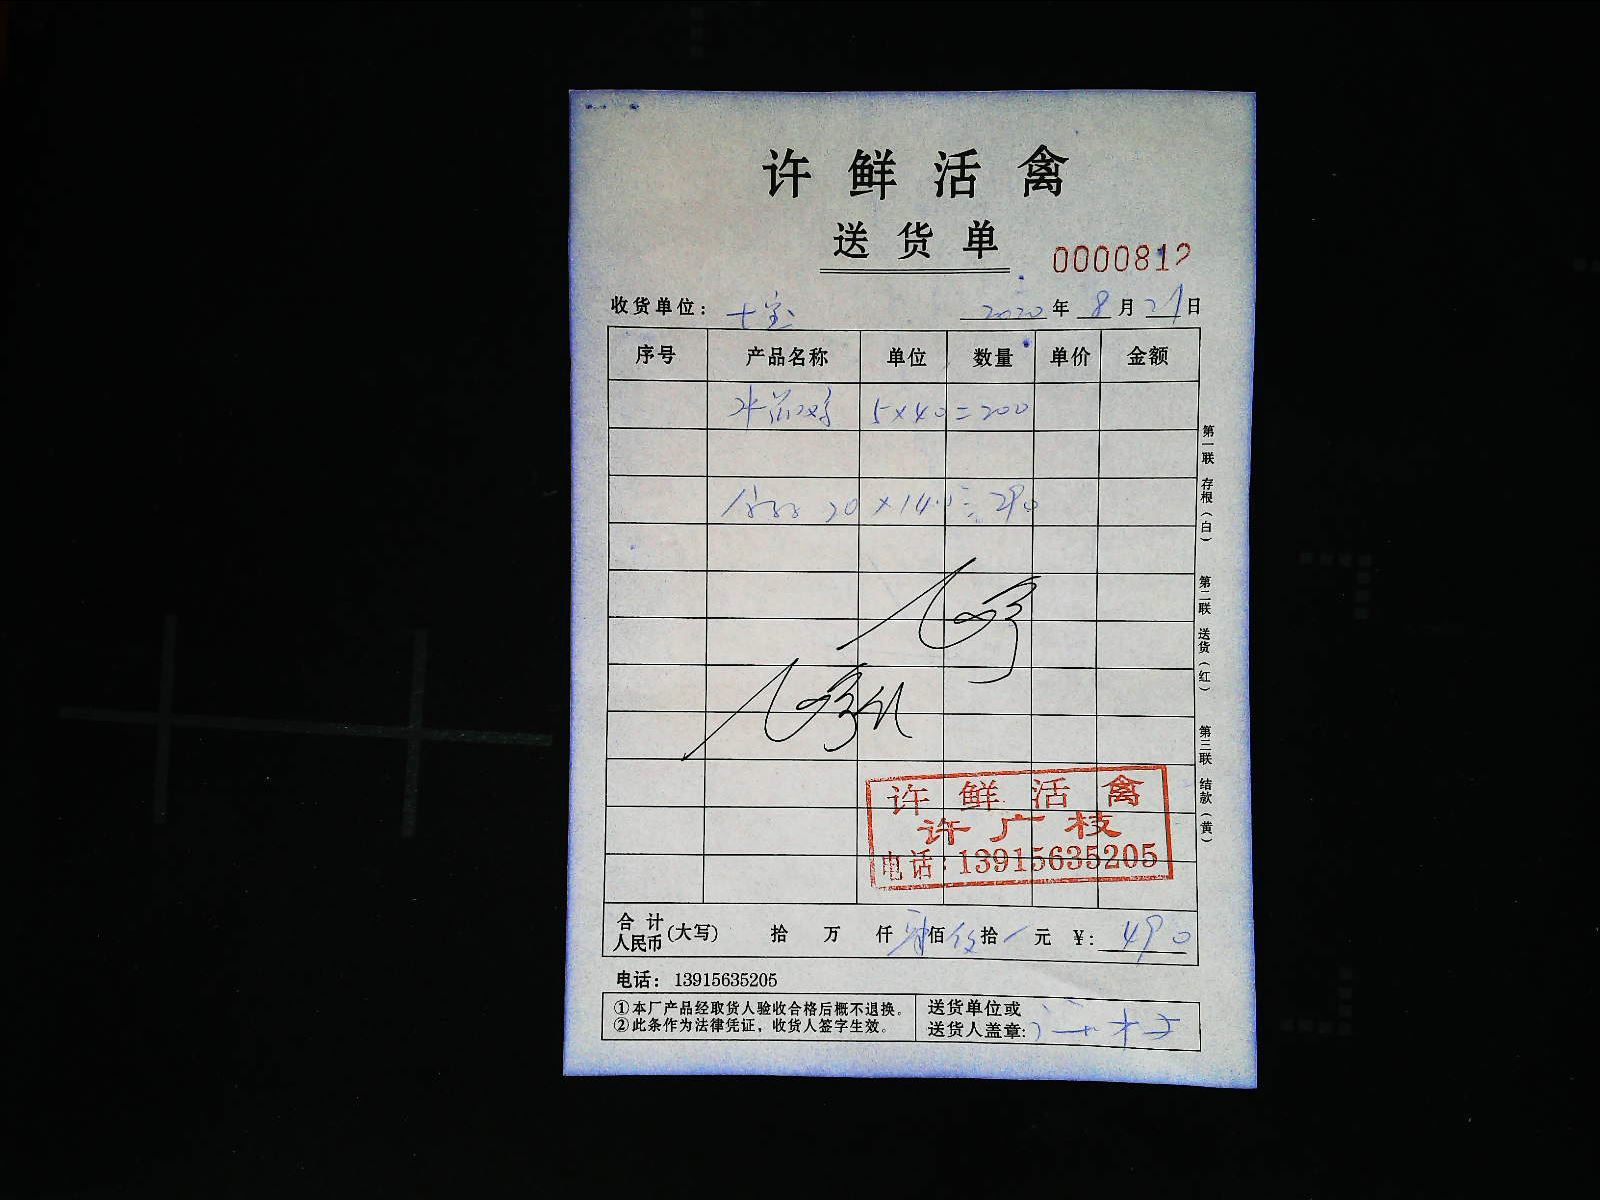 许鲜活禽
送货单
0000812
收货单位： 2020年8月21日
序号 产品名称 单位 数量 单价 金额
5×40=200
20×14.5=290
第一联 存根（白）
第二联 送货（红）
第三联 结款（黄）
许鲜活禽
许广枝
电话：13915635205
合计人民币(大写) 拾 万 仟 肆佰 玖拾 元 ￥：490
电话：13915635205
①本厂产品经取货人验收合格后概不退换。
②此条作为法律凭证，收货人签字生效。
送货单位或
送货人盖章：